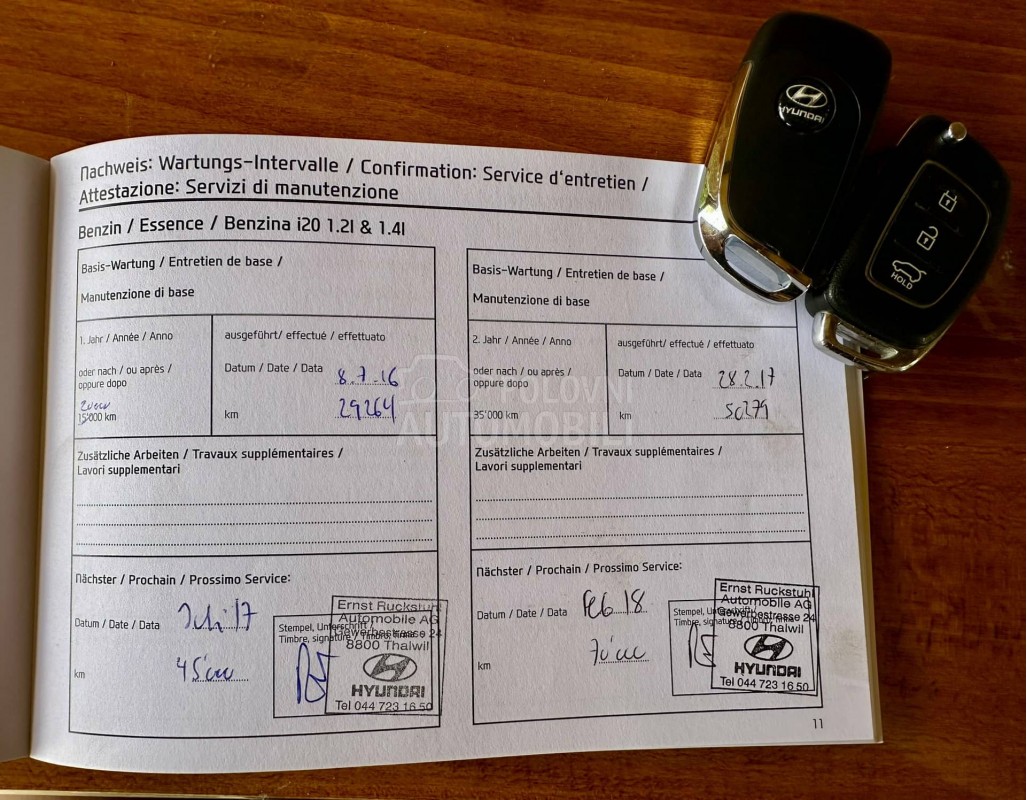 Nachweis: Wartungs-Intervalle / Confirmation: Service d'entretien /
Attestazione: Servizi di manutenzione
Benzin / Essence / Benzina i20 1.2l & 1.4l
Basis-Wartung / Entretien de base /
Manutenzione di base
1. Jahr / Année / Anno
oder nach / ou après /
oppure dopo
15'000 km
ausgeführt/ effectué / effettuato
Datum / Date / Data 8.7.16
km 29264
Zusätzliche Arbeiten / Travaux supplémentaires /
Lavori supplementari
Nächster / Prochain / Prossimo Service:
Datum / Date / Data Juli 17
km 45'000
Stempel, Unterschrift /
Timbre, signature / Timbro, firma
Ernst Ruckstuhl
Automobile AG
Gewerbestrasse 24
8800 Thalwil
HYUNDAI
Tel 044 723 16 50
Basis-Wartung / Entretien de base /
Manutenzione di base
2. Jahr / Année / Anno
oder nach / ou après /
oppure dopo
35'000 km
ausgeführt/ effectué / effettuato
Datum / Date / Data 28.2.17
km 50279
Zusätzliche Arbeiten / Travaux supplémentaires /
Lavori supplementari
Nächster / Prochain / Prossimo Service:
Datum / Date / Data Feb 18
km 70'000
Stempel, Unterschrift /
Timbre, signature / Timbro, firma
Ernst Ruckstuhl
Automobile AG
Gewerbestrasse 24
8800 Thalwil
HYUNDAI
Tel 044 723 16 50
11
HYUNDAI
HOLD
POLOVNI
AUTOMOBILI